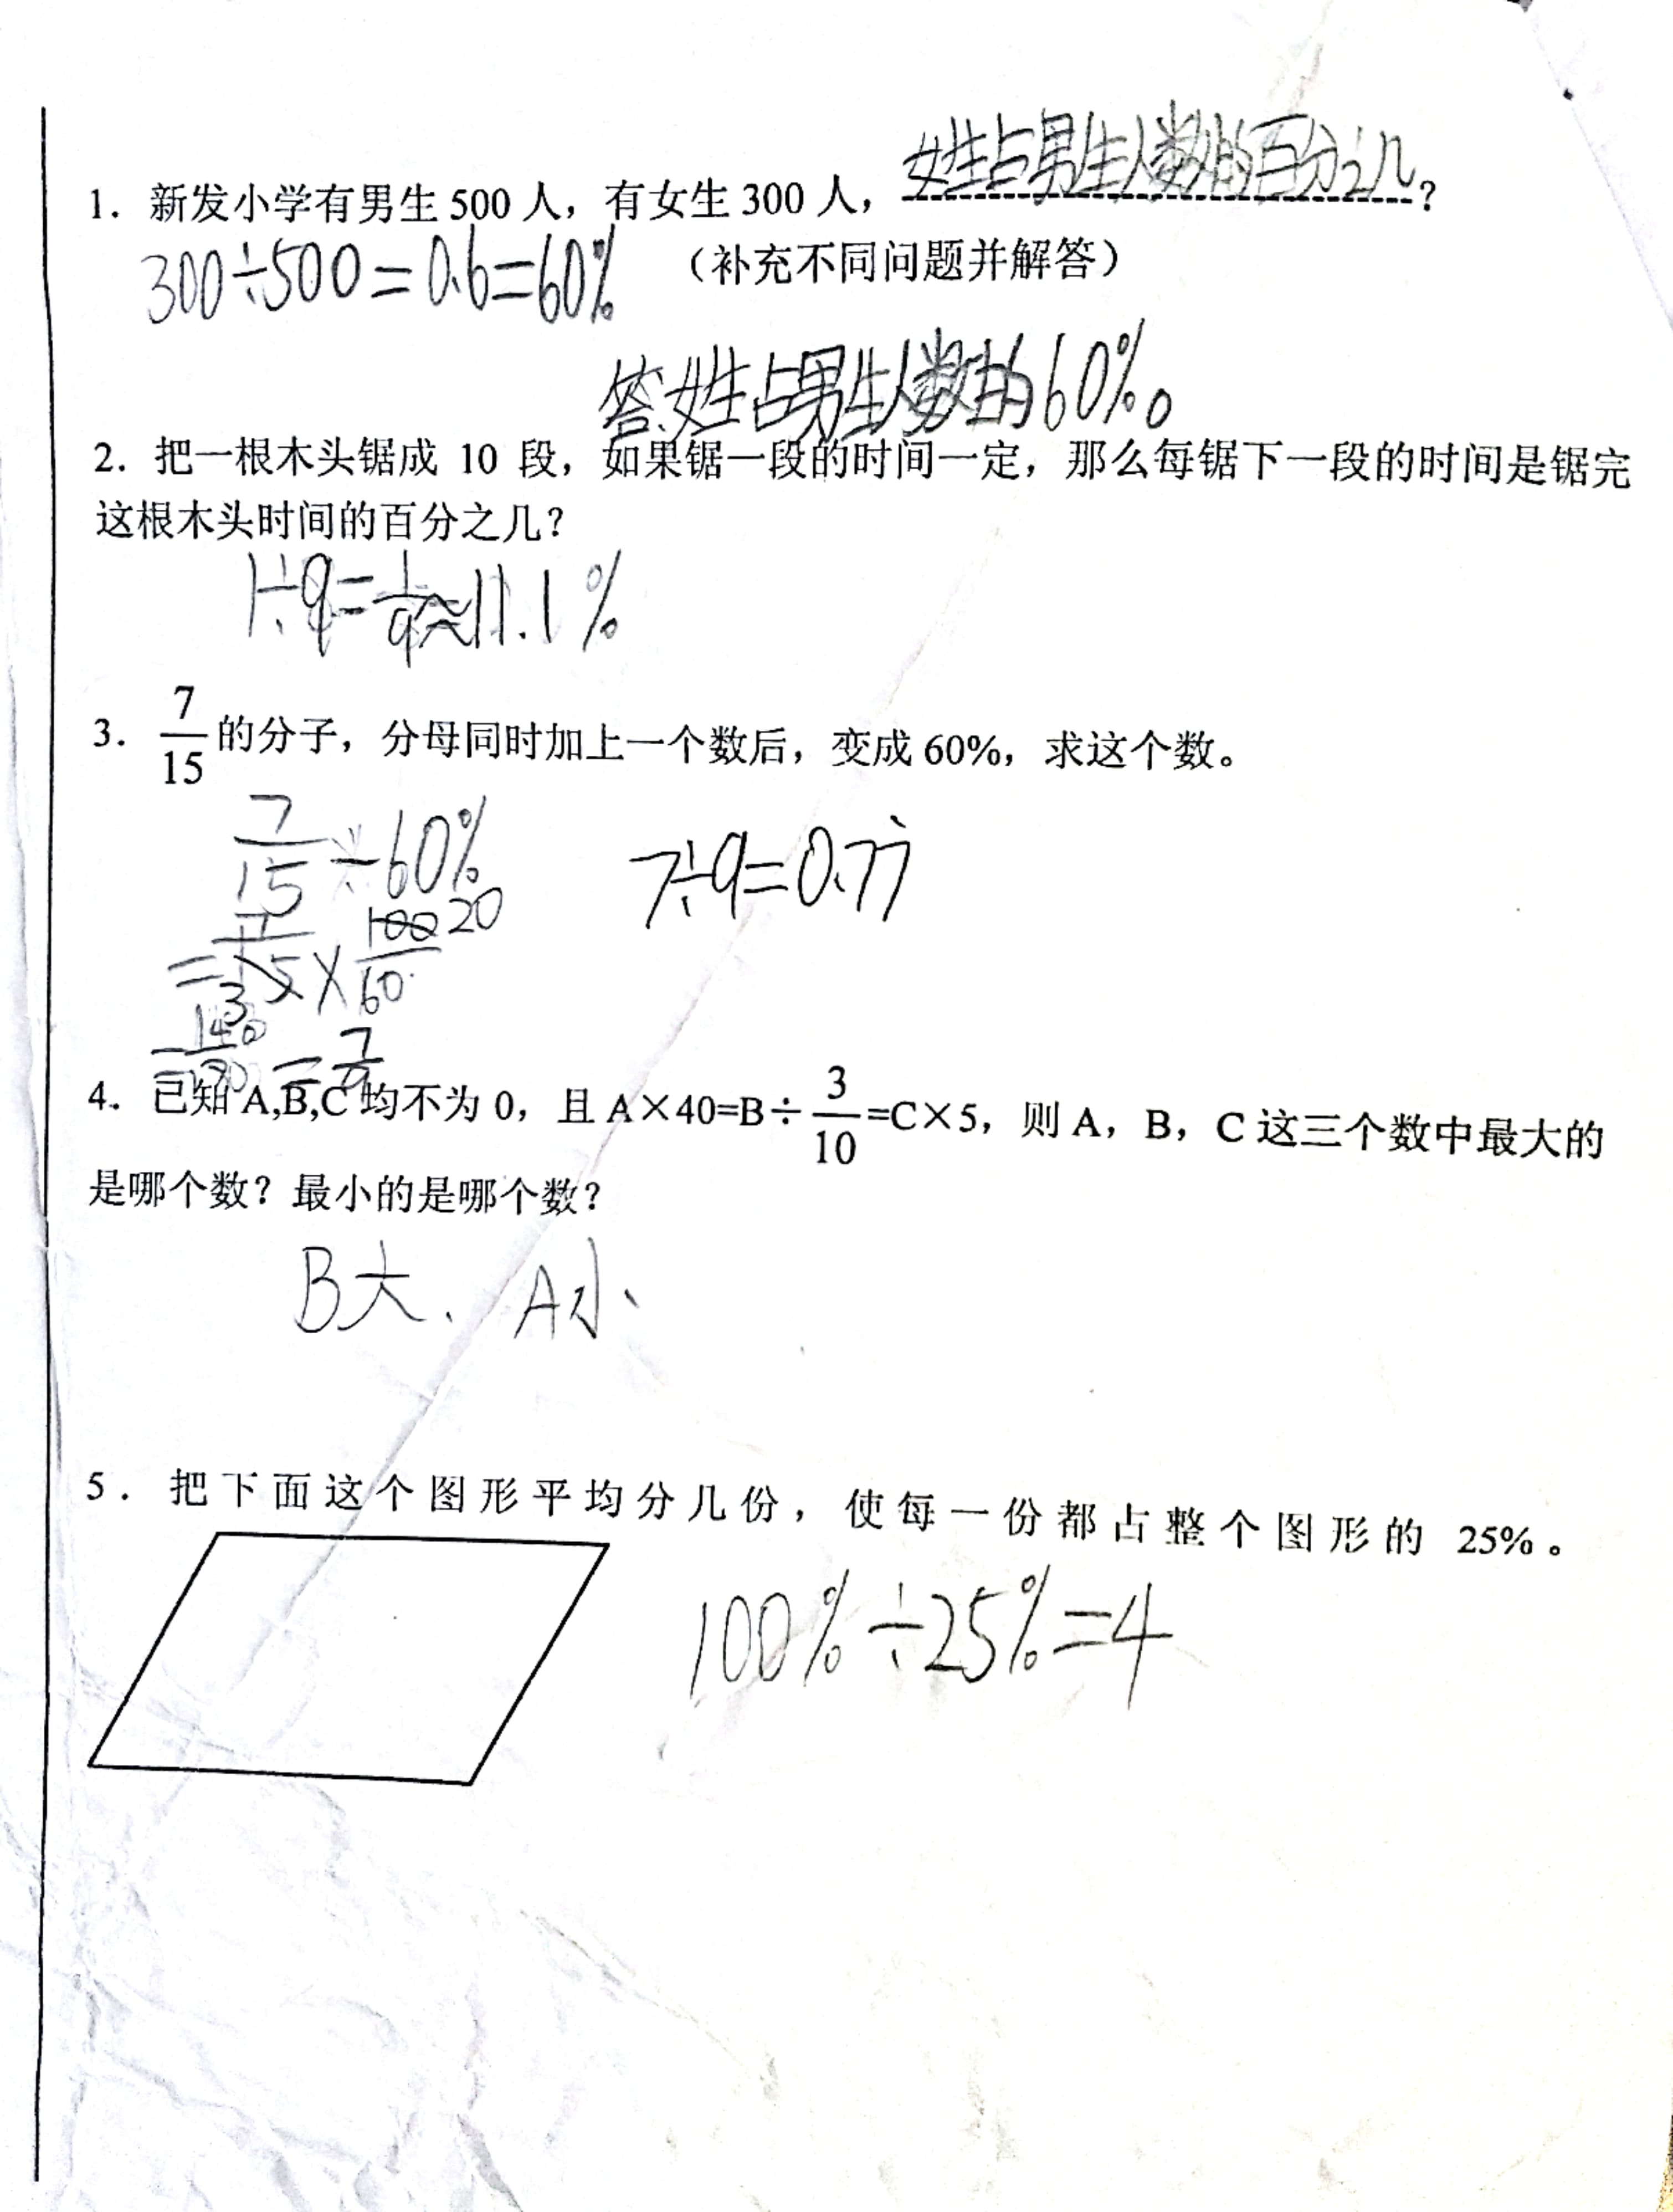 女生占男生人数的百分之几
1. 新发小学有男生 500 人，有女生 300 人，?
300÷500=0.6=60%
（补充不同问题并解答）
答:女生占男生人数的60%。
2. 把一根木头锯成 10 段，如果锯一段的时间一定，那么每锯下一段的时间是锯完
这根木头时间的百分之几？
1÷9=1/9≈11.1%
3. 7/15 的分子，分母同时加上一个数后，变成 60%，求这个数。
7/15÷60%
7÷9=0.77
=7/15×100/60
3 20
=140/180=7/9
4. 已知 A,B,C 均不为 0，且 A×40=B÷3/10=C×5，则 A，B，C 这三个数中最大的
是哪个数？最小的是哪个数？
B大. A小
5. 把下面这个图形平均分几份，使每一份都占整个图形的 25%。
100%÷25%=4